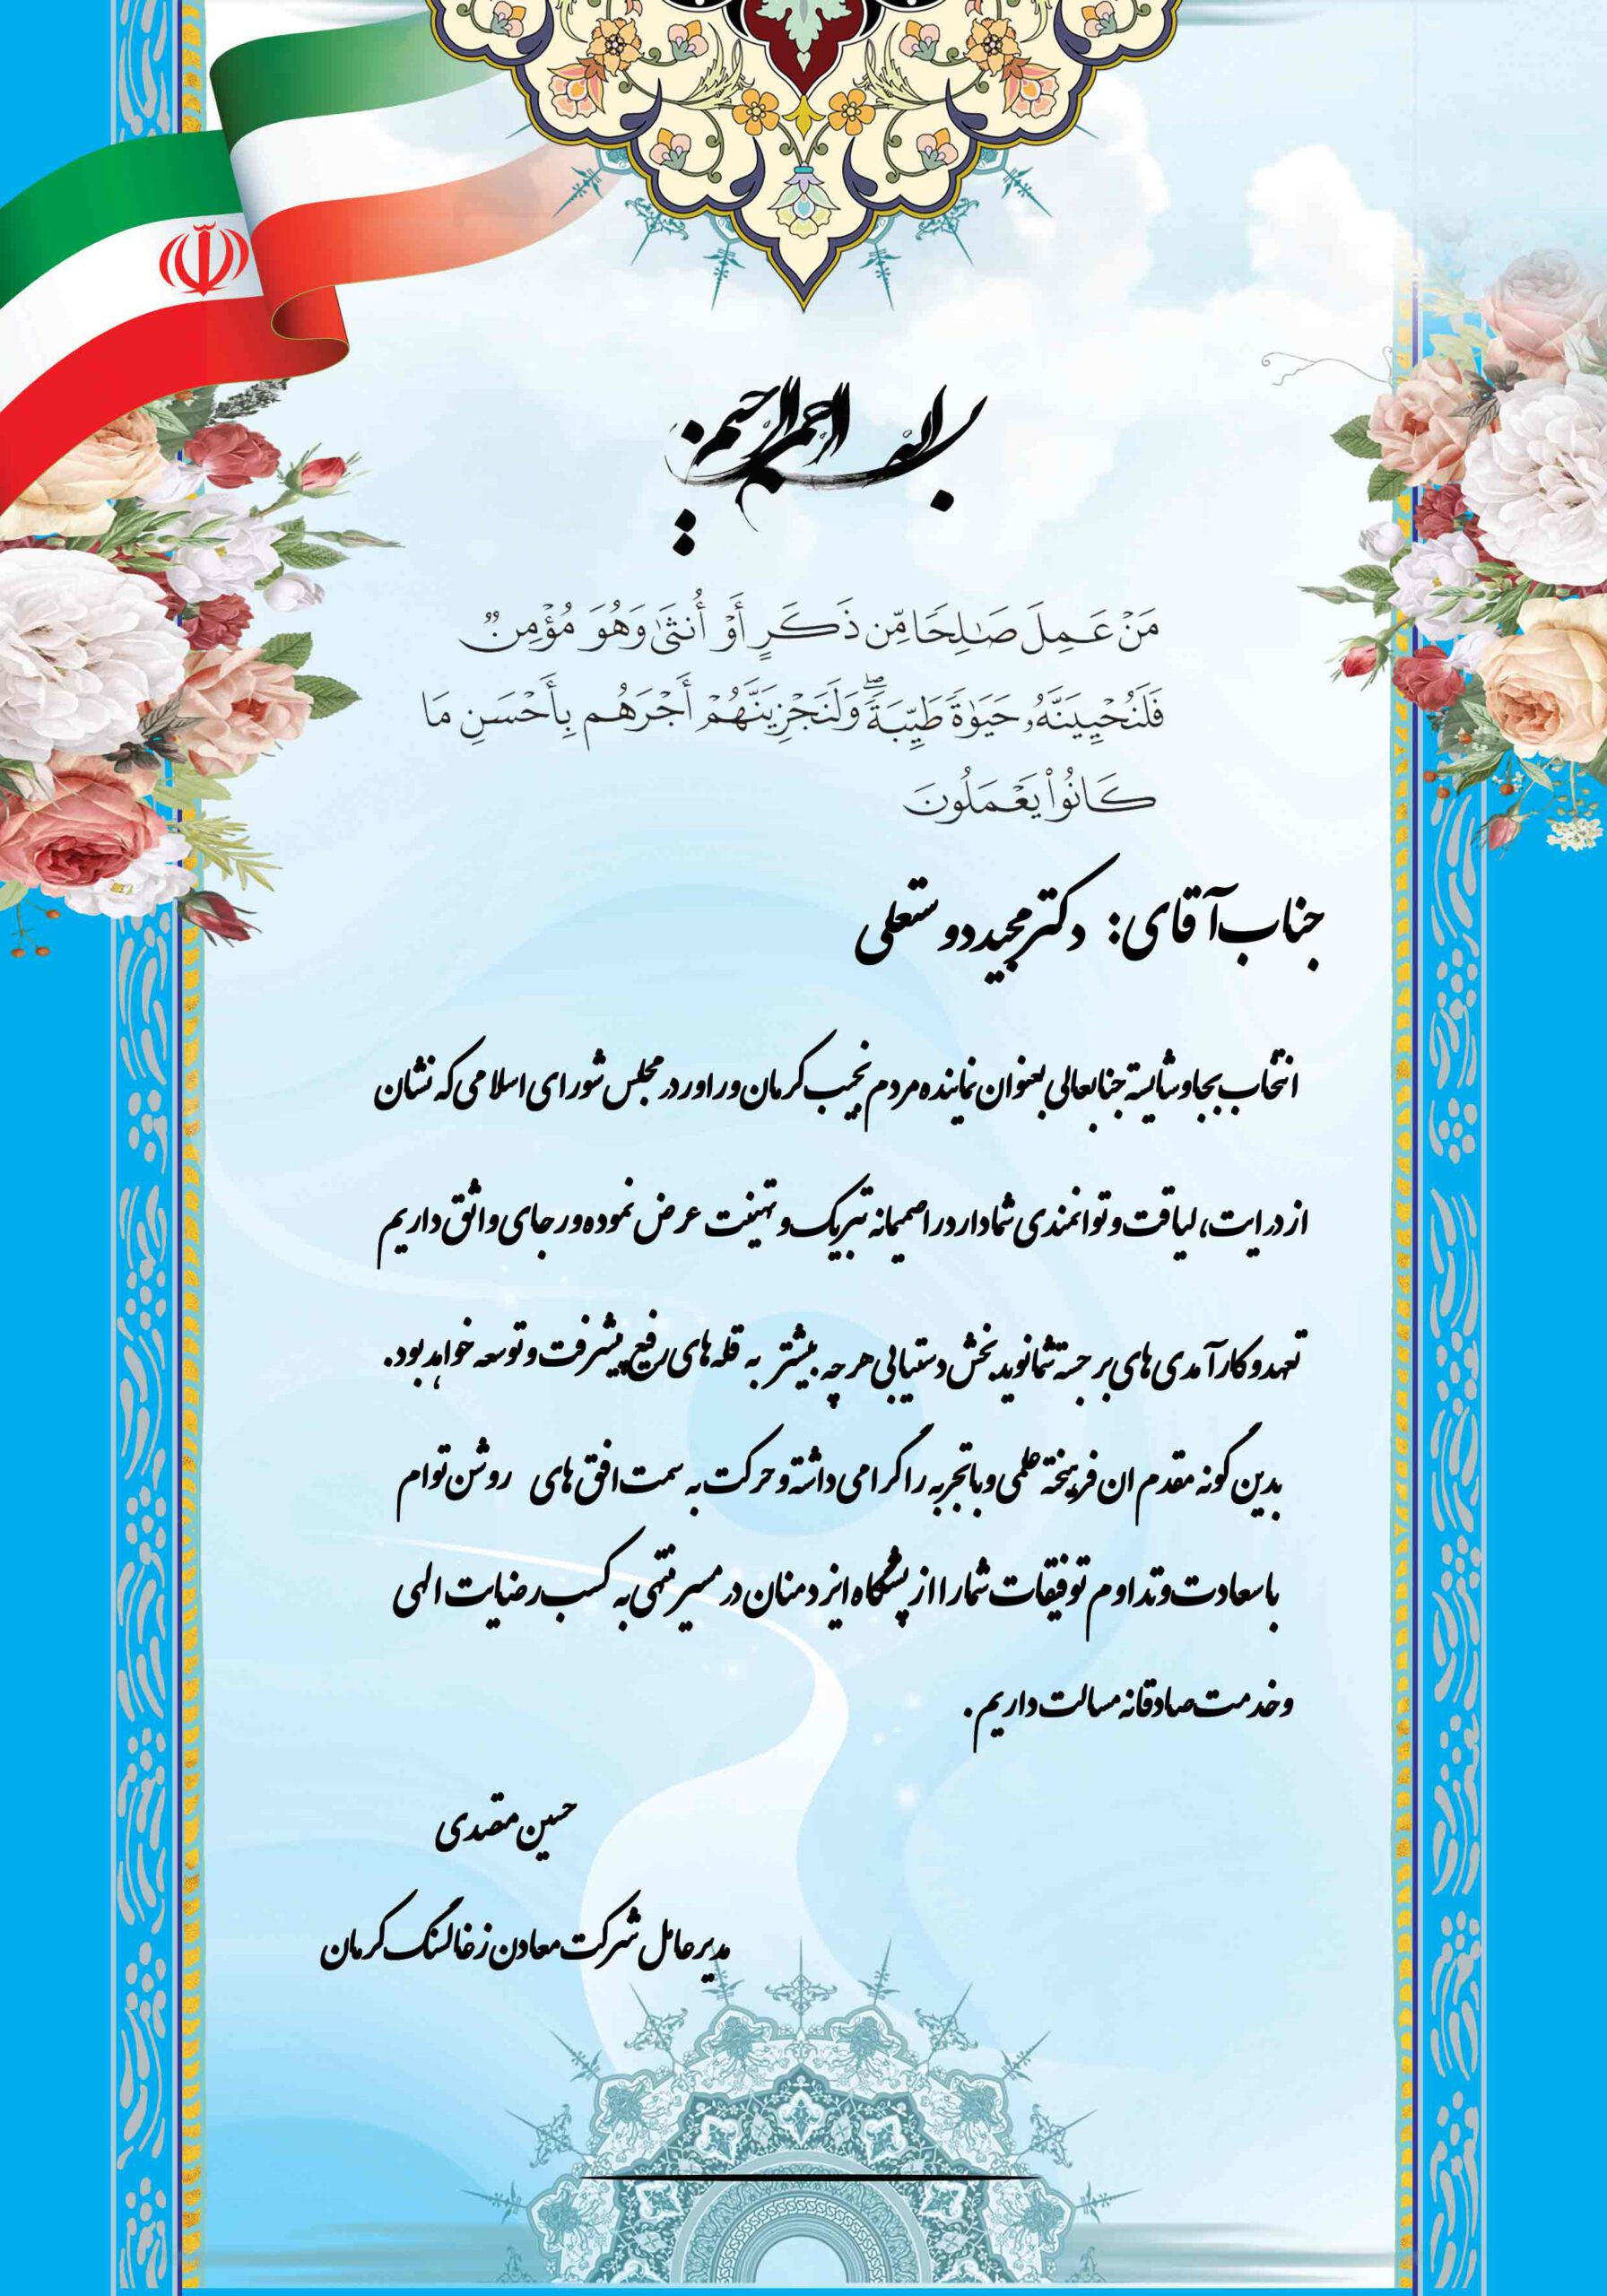 بسم الله الرحمن الرحیم
مَنْ عَمِلَ صَـٰلِحًا مِّن ذَكَرٍ أَوْ أُنثَىٰ وَهُوَ مُؤْمِنٌ
فَلَنُحْيِيَنَّهُۥ حَيَوٰةً طَيِّبَةً ۖ وَلَنَجْزِيَنَّهُمْ أَجْرَهُم بِأَحْسَنِ مَا
كَانُوا۟ يَعْمَلُونَ
جناب آقای: دکتر مجید دوستعلی
انتخاب بجا و شایسته جنابعالی بعنوان نماینده مردم نجیب کرمان و راور در مجلس شورای اسلامی که نشان
از درایت، لیاقت و توانمندی شما دارد را صمیمانه تبریک و تهنیت عرض نموده و رجای واثق داریم
تعهد و کارآمدی های برجسته شما نوید بخش دستیابی هر چه بیشتر به قله های رفیع پیشرفت و توسعه خواهد بود.
بدین گونه مقدم ان فرهیخته علمی و باتجربه را گرامی داشته و حرکت به سمت افق های روشن توام
با سعادت و تداوم توفیقات شما را از پیشگاه ایزد منان در مسیر منتهی به کسب رضایت الهی
و خدمت صادقانه مسالت داریم.
حسین مقصدی
مدیرعامل شرکت معادن زغالسنگ کرمان